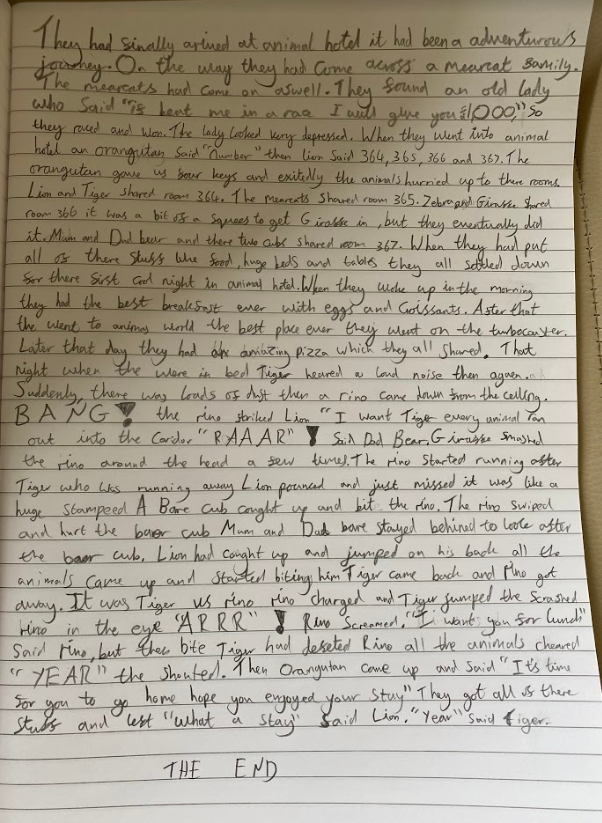 They had finally arived at animal hotel it had been a adventurous
journey. On the way they had come across a mearcat family.
The mearcats had come on aswell. They found an old lady
who said "if beat me in a race I will give you £1000," So
they raced and won. The lady looked very depressed. When they went into animal
hotel an orangutan said "number" then lion said 364, 365, 366 and 367. The
orangutan gave us four keys and exitedly the animals hurried up to there rooms.
Lion and Tiger shared room 364. The mearcats shared room 365. Zebra and Giraffe shared
room 366 it was a bit of a squees to get Giraffe in, but they eventually did
it. Mum and Dad bear and there two cubs shared room 367. When they had put
all of there stuff like food, huge beds and tables they all settled down
for there first cool night in animal hotel. When they woke up in the morning
they had the best breakfast ever with eggs and Croissants. After that
the went to animal world the best place ever they went on the turbocoaster.
Later that day they had amazing pizza which they all shared. That
night when the were in bed Tiger heared a loud noise then again.
Suddenly, there was loads of dust then a rino came down from the ceiling.
BANG! the rino striked Lion "I want Tiger every animal ran
out into the Coridor "RAAAR"! Said Dad Bear, Giraffe smashed
the rino around the head a few times. The rino started running after
Tiger who was running away Lion pounced and just missed it was like a
huge stampeed A Bare cub caught up and bit the rino. The rino swiped
and hurt the baer cub Mum and Dad bare stayed behined to look after
the baer cub. Lion had caught up and jumped on his back all the
animals came up and started biting him Tiger came back and Rino got
away. It was Tiger vs rino rino charged and Tiger jumped the scrashed
rino in the eye "ARRR"! Rino screamed. "I want you for lunch"
said rino, but then bite Tiger had defeted Rino all the animals cheared
"YEAR" the shouted. Then Orangutan came up and said "It's time
for you to go home hope you enjoyed your stay" They got all of there
stuff and left "what a stay" said Lion. "Year" said tiger.
THE END